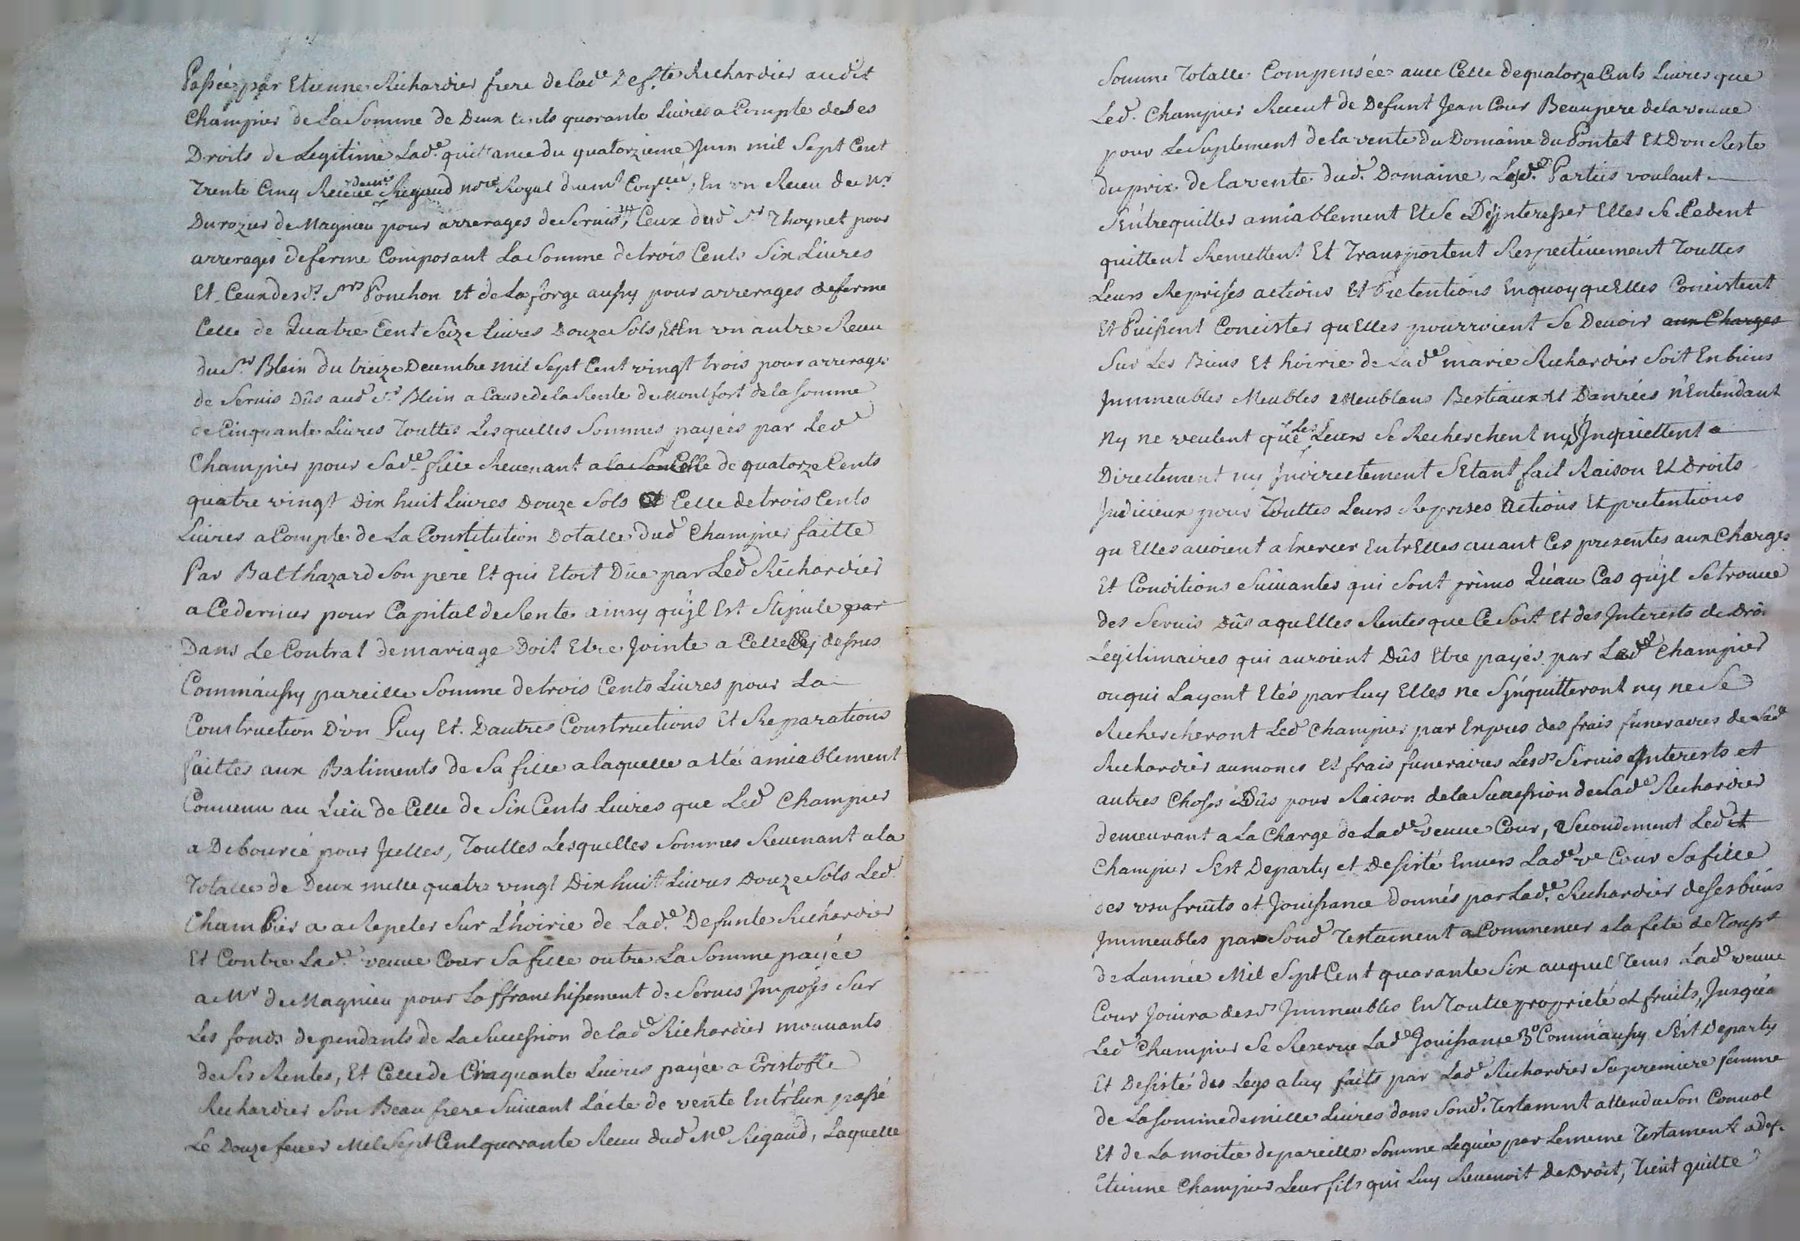 Passée par Etienne Richardier frere de lade Deffte Richardier audit
Champier de La Somme de Deux Cents quarante Livres a Compte de Ses
Droits de Legitime Lade quittance du quatorzieme Juin mil Sept Cent
Trente Cinq Receue Rigaud nore Royal ; En un Receu de Mr
Durozier de Magnieu pour arrerages de Servis, Ceux dud Sr Thoynet pour
arrerages de ferme Composant La Somme de trois Cents Six Livres
Et Ceux desds Srs Ponchon et de Laforge aussy pour arrerages de ferme
Celle de Quatre Cent Seize Livres Douze Sols, Et En un autre Receu
du Sr Blein du treize Decembre mil Sept Cent vingt trois pour arrerages
de Servis Dûs aud Sr Blein a Cause de la Rente de Montfort de la Somme
de Cinquante Livres Touttes Lesquelles Sommes payées par Led
Champier pour Sade fille Revenant a Celle de quatorze Cents
quatre vingt Dix huit Livres Douze Sols et Celle de trois Cents
Livres a Compte de La Constitution Dotalle dud Champier faitte
Par Balthazard Son pere Et qui Etoit Düe par Led Richardier
a Ce dernier pour Capital de Rente ainsy qu'jl Est Stipulé par
Dans Le Contrat de mariage Doit Etre Jointe a Celle Cy dessus
Comm'aussy pareille Somme de trois Cents Livres pour La
Construction D'un Puy Et D'autres Constructions Et Reparations
faittes aux Batiments de Sa fille a laquelle a Eté amiablement
Convenu au Lieu de Celle de Six Cents Livres que Led Champier
a Debourcé pour Jcelles, Touttes Lesquelles Sommes Revenant a la
Totalle de Deux mille quatre vingt Dix huit Livres Douze Sols Led
Champier a a Repeter Sur L'hoirie de Lade Defunte Richardier
Et Contre Lade veuve Cour Sa fille outre La Somme payée
a Mr de Magnieu pour Laffranchissement de Servis Jmposés Sur
Les fonds dependants de La Succession de lade Richardier mouvants
de Ses Rentes, Et Celle de Cinquante Livres payée a Cristofle
Richardier Son Beau frere Suivant L'acte de vente Entr'Eux passé
Le Douze fevrier Mil Sept Cent quarante Receu dud Me Rigaud, Laquelle
Somme Totalle Compensée avec Celle de quatorze Cents Livres que
Led Champier Receut de Defunt Jean Cour Beaupere de la veuve
pour Le Suplement de la vente du Domaine du Pontet Et D'un Reste
du prix de la vente dud Domaine, Lesd Parties voulant
S'Entrequitter amiablement Et Se Desjnteresser Elles Se Cedent
quittent Remettent Et Transportent Respectivement Touttes
Leurs Reprises actions Et Pretentions En quoy qu'Elles Concistent
Et Puissent Concister qu'Elles pourroient Se Devoir aux Charges
Sur Les Biens Et hoirie de Lade marie Richardier Soit En biens
Jmmeubles Meubles Meublans Bestiaux Et Danrées N'Entendant
Ny ne veulent que Les Leurs Se Recherchent ny Jnquiettent
Directement ny Jndirectement S'Etant fait Raison Et Droits
Judicieux pour Touttes Leurs Reprises Actions Et pretentions
qu'Elles avoient a Exercer Entr'Elles avant Ces presentes aux Charges
Et Conditions Suivantes qui Sont primo Qu'au Cas qu'jl Se trouve
des Servis Dûs a quelles Rentes que Ce Soit Et des Jnterests de Droits
Legitimaires qui auroient Dûs Etre payés par Led Champier
ou qui L'ayent Etés par Luy Elles ne S'jnquitteront ny ne Se
Rechercheront Led Champier par Expres des frais funeraires de Lade
Richardier aumones Et frais funeraires Lesds Servis Jnterests et
autres Choses Dûs pour Raison de la Succession de Lade Richardier
demeurant a La Charge de Lade veuve Cour, Secondement Ledit
Champier S'Est Departy et Desisté Envers Lade ve Cour Sa fille
des usufruits et Jouissance Donnés par Lade Richardier de Ses biens
Jmmeubles par Sond Testament a Commencer a La fete de Toussts
de L'année Mil Sept Cent quarante Six auquel Tems Lade veuve
Cour Jouira desds Jmmeubles En Toutte proprieté et fruits, Jusqu'a
Led Champier Se Reserve Lade Jouissance 3o Comm'aussy S'Est Departy
Et Desisté des Legs a luy faits par Lade Richardier Sa premiere femme
de La Somme de mille Livres dans Sond Testament attendu Son Convol
Et de La moitié de pareille Somme Leguée par Le meme Testament a def
Etienne Champier Leur fils qui Luy Revenoit de Droit, Tient quitte